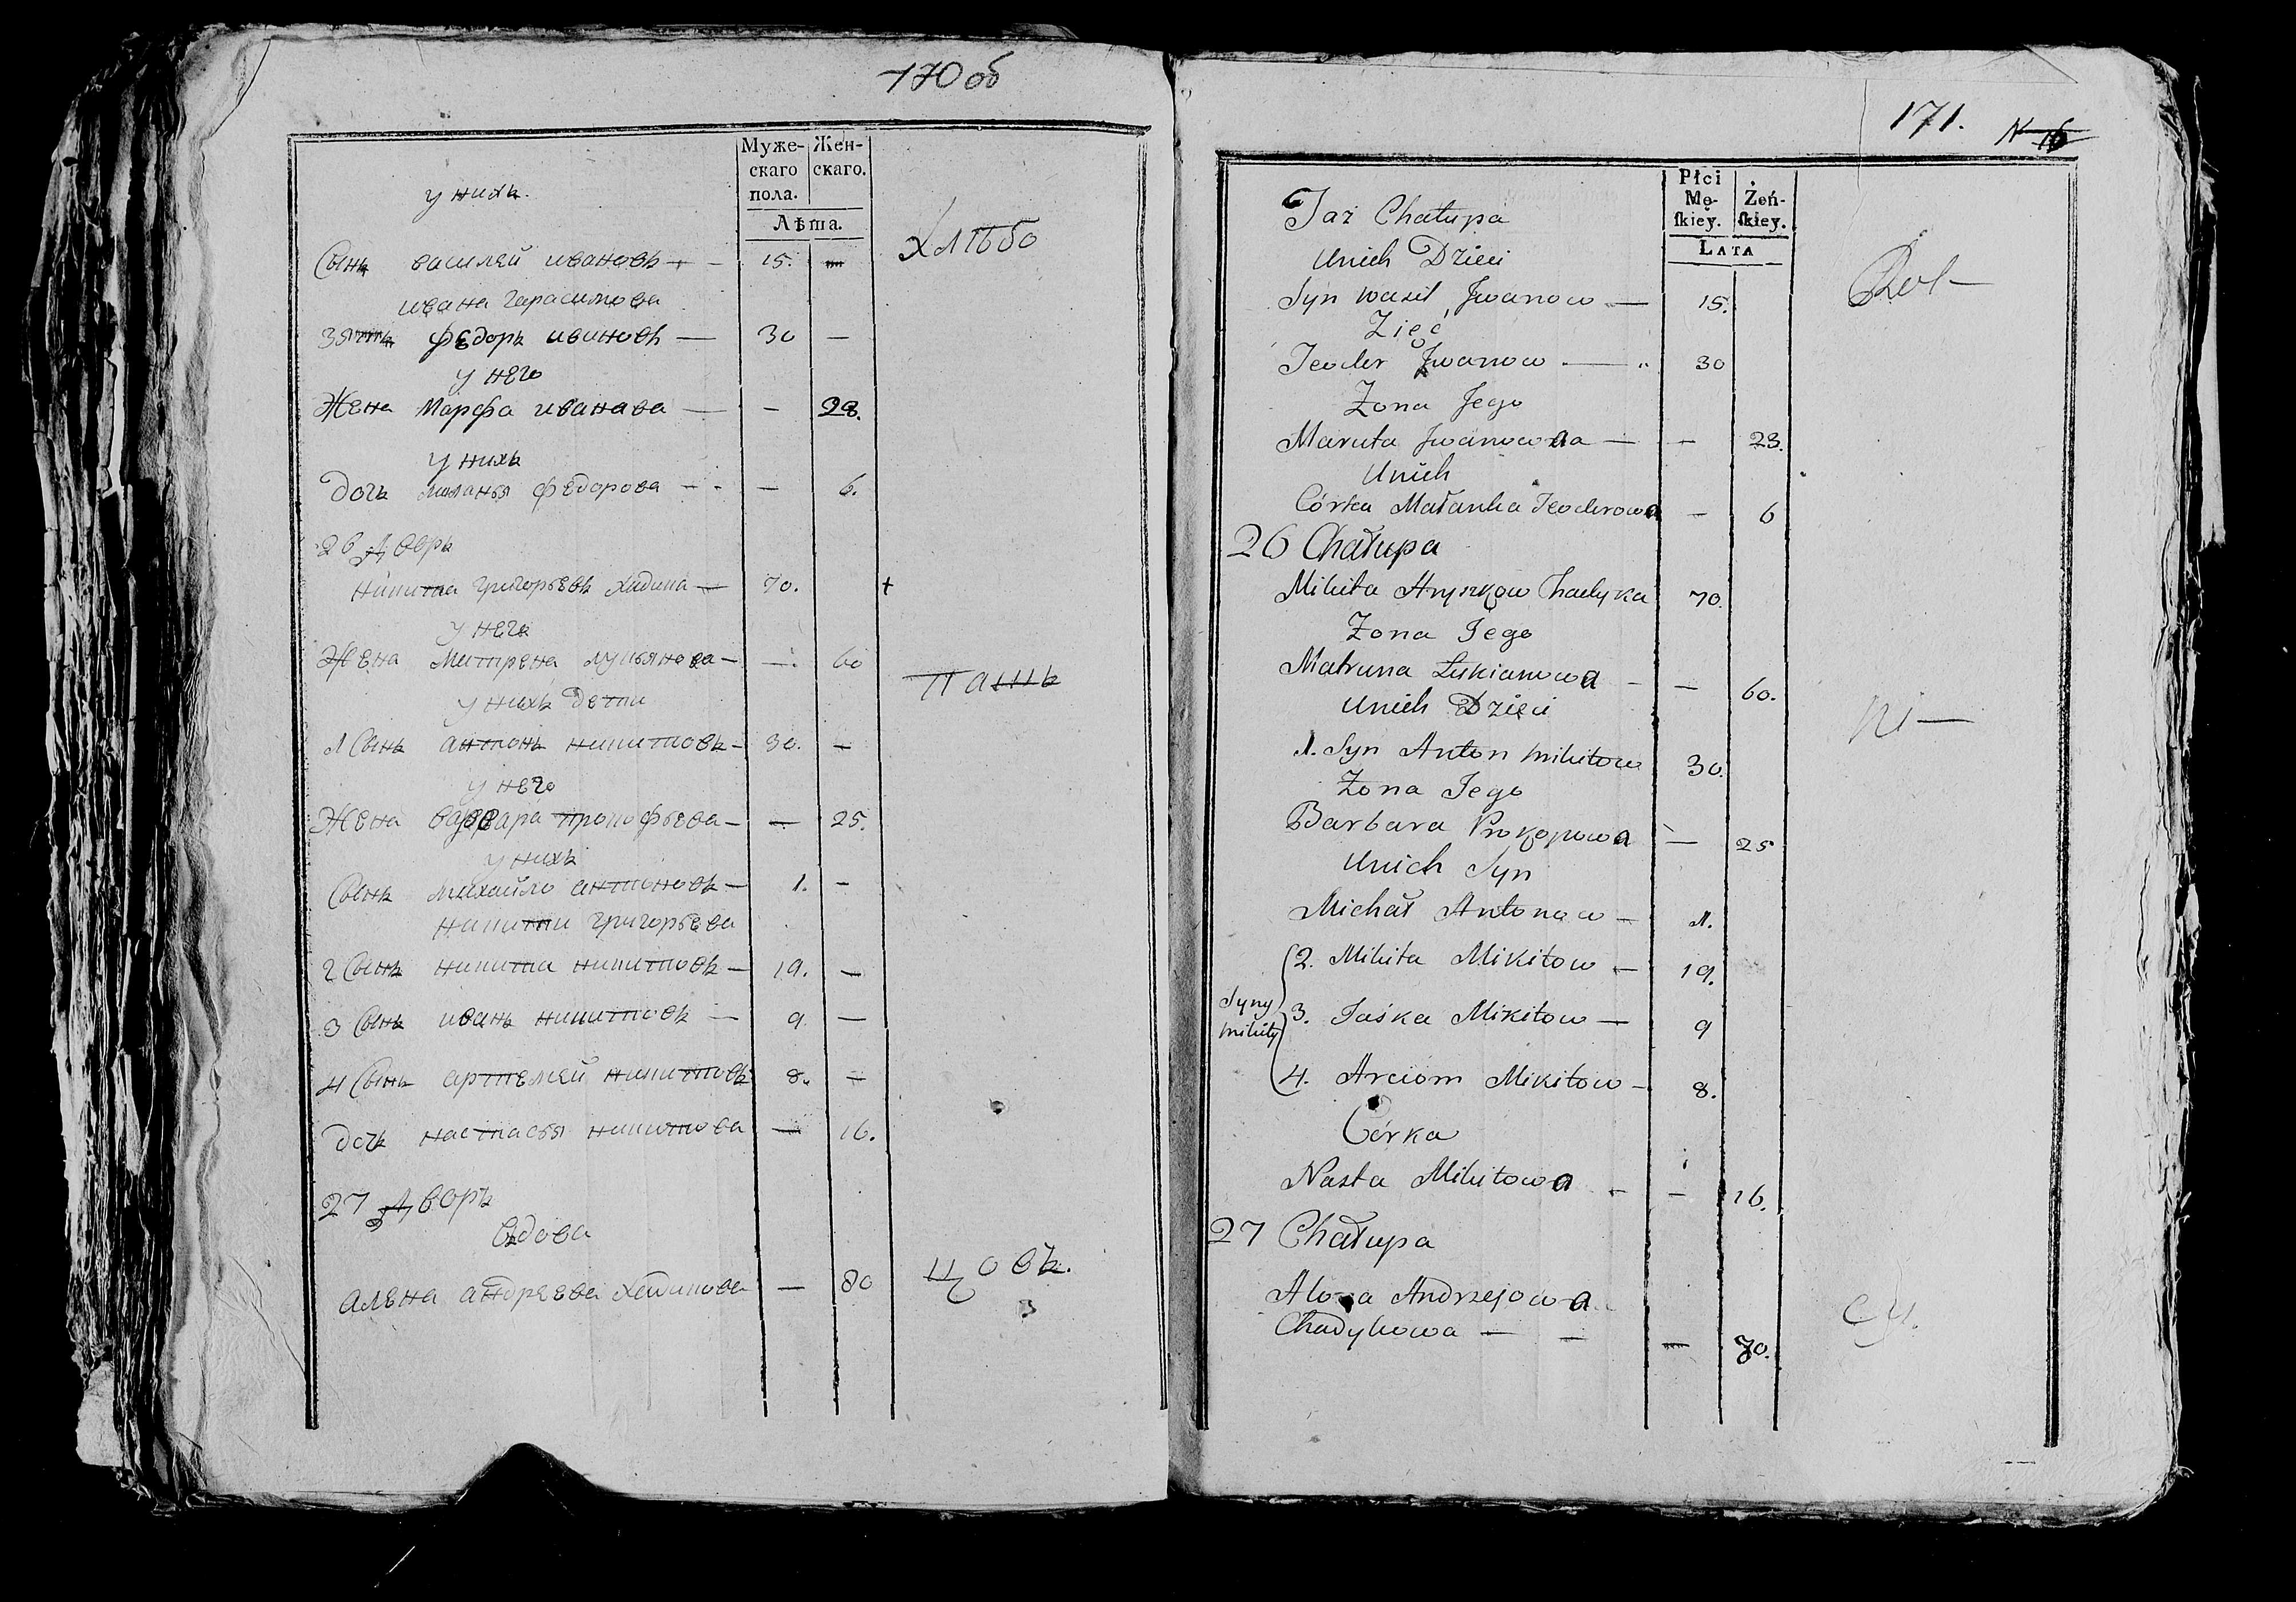 170 об
Муже-
скаго
пола.
Жен-
скаго.
Лѣта.
у нихъ.
Сынъ василей ивановъ — 15. —
ивана герасимова
зять федоръ ивановъ — 30 —
у него
Жена Марфа иванава — — 28.
у нихъ
дочь маланья федорова — — 6.
26 Дворъ
никита григорьевъ хадика — 70.
у него
Жена Матрена лукьянова — — 60
у нихъ дети
1 Сынъ антонъ никитовъ — 30. —
у него
Жена варвара прокофьева — — 25.
у нихъ
Сынъ михайло антоновъ — 1. —
никиты григорьева
2 Сынъ никита никитовъ — 19. —
3 Сынъ иванъ никитовъ — 9 —
4 Сынъ артемей никитовъ 8. —
дочь настасья никитова — 16.
27 Дворъ
вдова
алена андреева хадикова — 80
Хлѣбо
пашнь
цовъ.
171.
N 16
Płci
Mę-
skiey.
Żeń-
skiey.
LATA
Taż Chałupa
Unich Dzieci
Syn Wasil Jwanow — 15.
Zięć
Teodor Jwanow — 30
Żona Jego
Maruta Jwanowna — — 23.
Unich
Córka Małanka Teodorowa — 6
26 Chałupa
Mikita Hryszkow Chadyka 70.
Żona Jego
Matruna Łukianowa — — 60.
Unich Dzieci
1. Syn Anton Mikitow 30.
Żona Jego
Barbara Prokopowa — 25
Unich Syn
Michał Antonow — 1.
2. Mikita Mikitow — 19.
Syny
Mikity
3. Jaśka Mikitow — 9
4. Arciom Mikitow — 8.
Córka
Nasta Mikitowa — — 16.
27 Chałupa
Alona Andrzejowa
Chadykowa — — — 70.